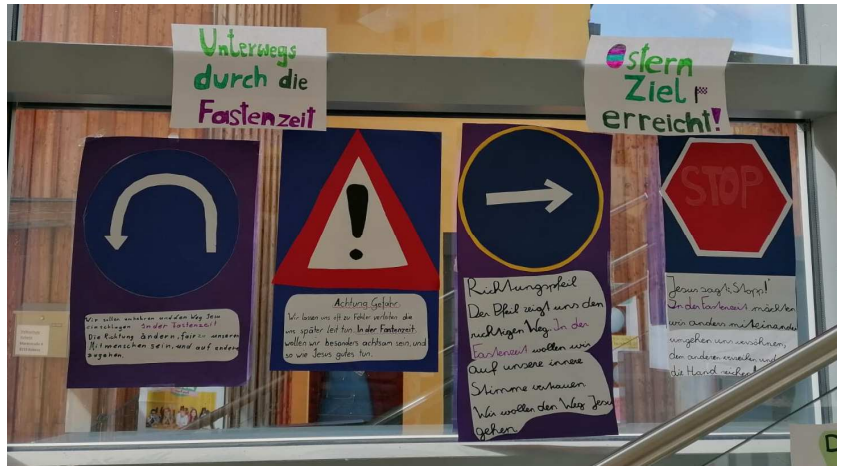 Unterwegs
durch die
Fastenzeit
Ostern
Ziel
erreicht!
Wir sollen umkehren und den Weg Jesu
einschlagen In der Fastenzeit
Die Richtung ändern, fair zu unseren
Mitmenschen sein, und auf andere
zugehen.
Achtung Gefahr
Wir lassen uns oft zu Fehler verleiten die
uns später leit tun. In der Fastenzeit
wollen wir besonders achtsam sein, und
so wie Jesus gutes tun.
Richtungspfeil
Der Pfeil zeigt uns den
richtigen Weg. In der
Fastenzeit wollen wir
auf unsere innere
Stimme vertrauen
Wir wollen den Weg Jesu
gehen.
STOP
Jesus sagt: Stopp!
In der Fastenzeit möchten
wir anders miteinander
umgehen uns versöhnen,
den anderen verzeihen und
die Hand reichen!
D